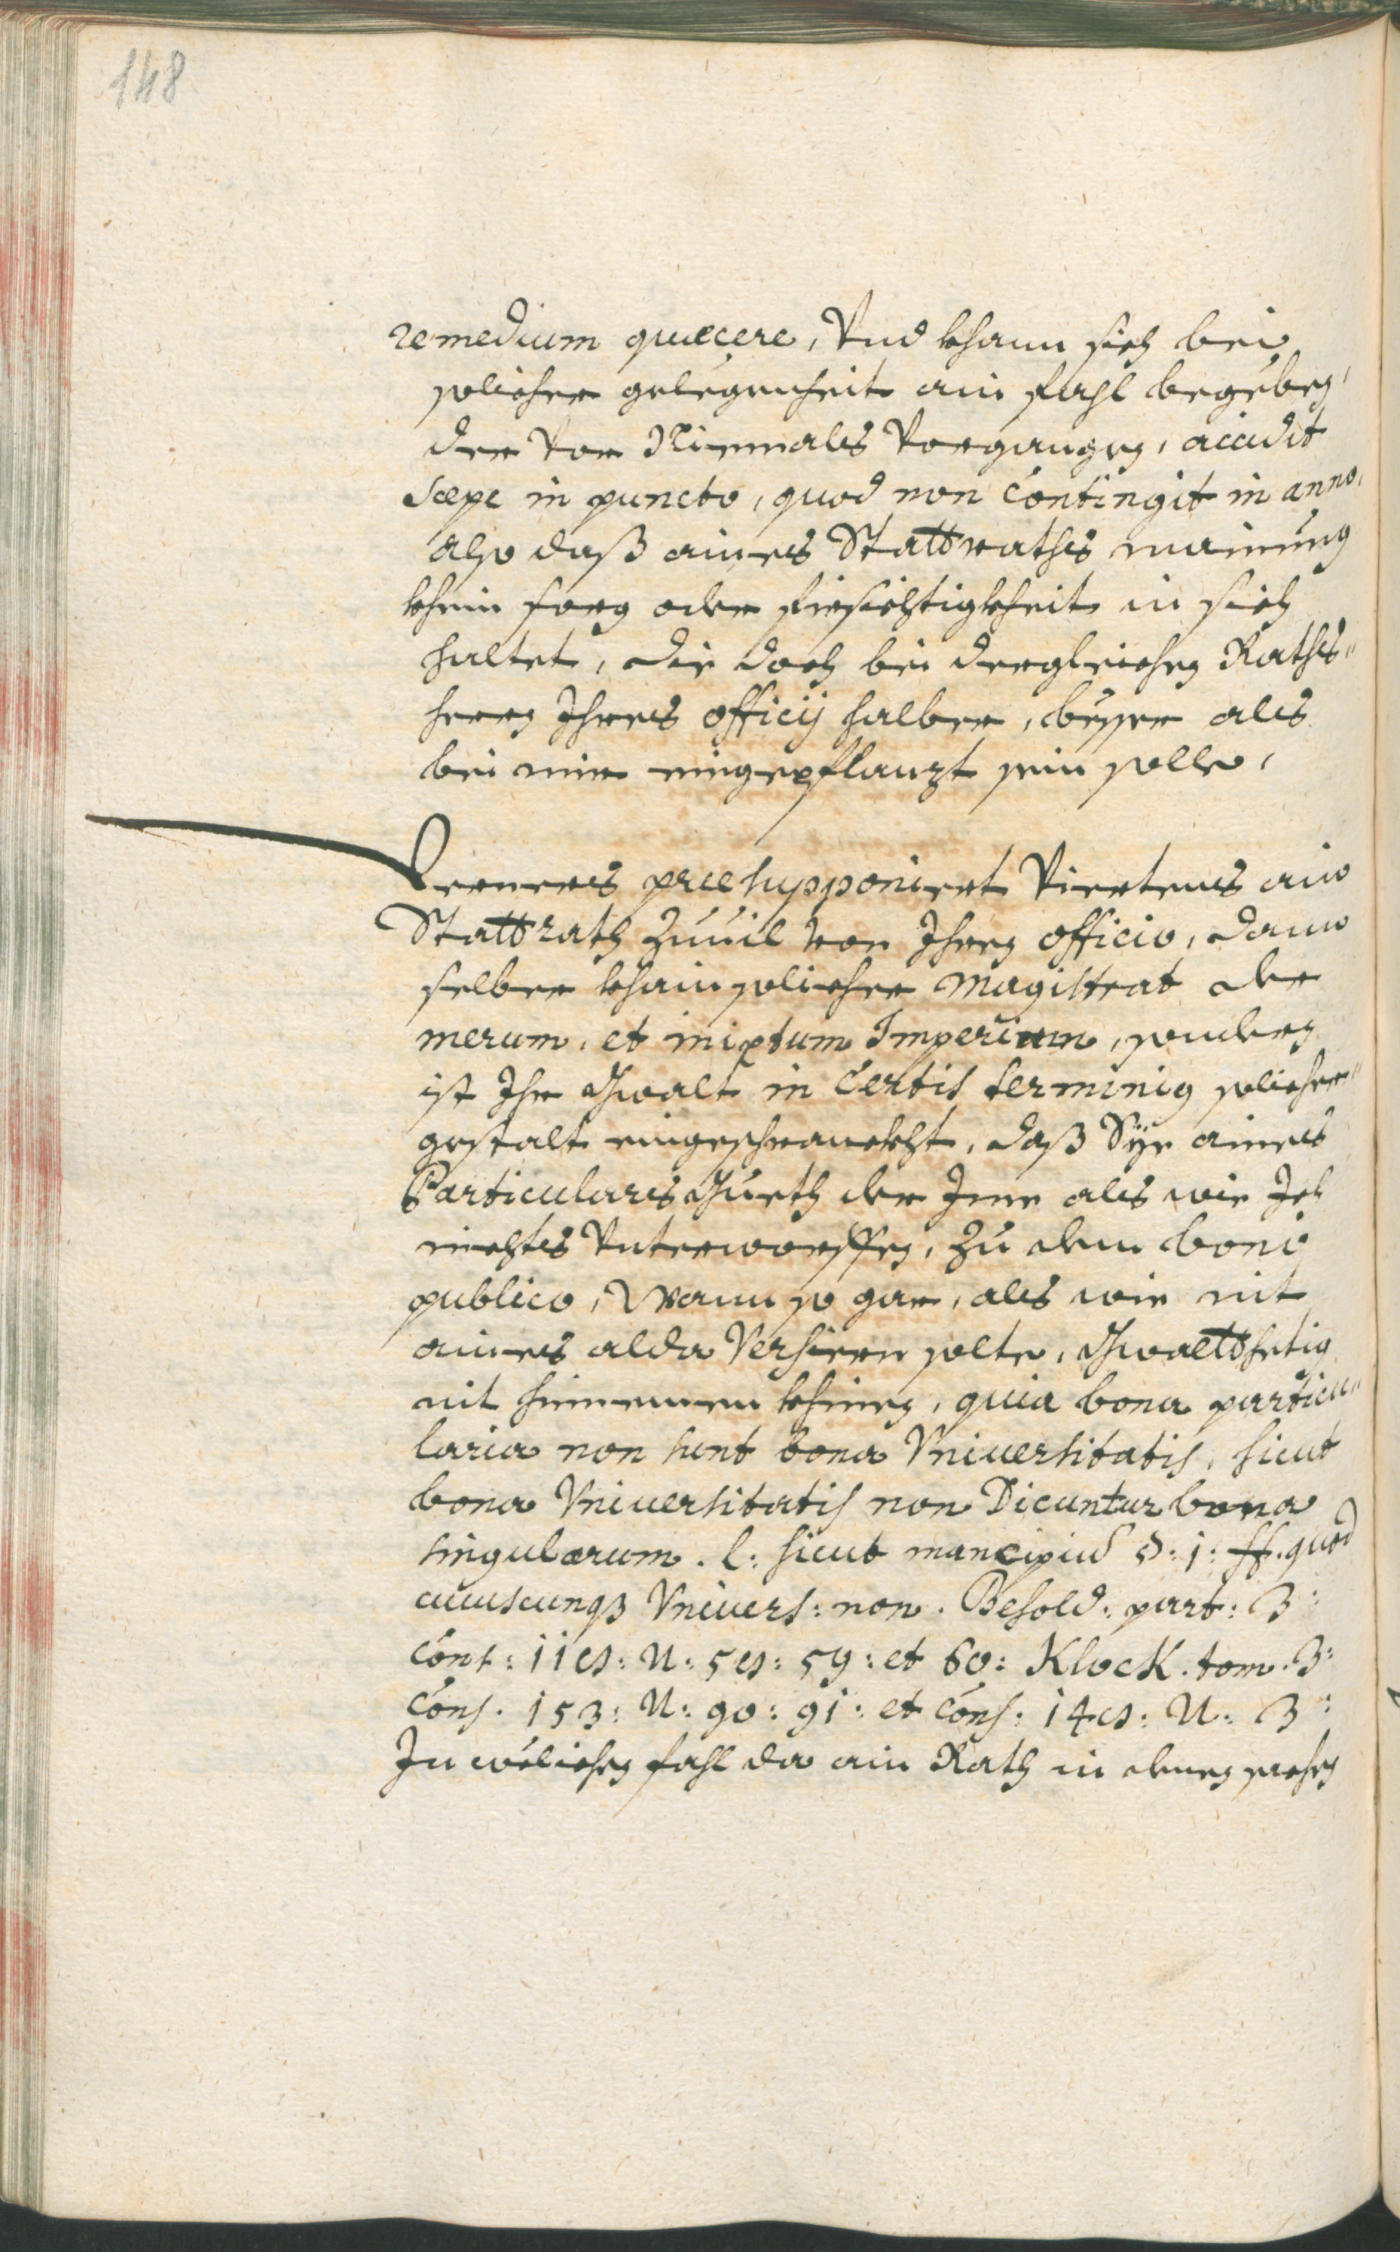 148
remedium quæcere, Vnd khann sich bei
solicher gelegenheit ain fahl begeben,
der vor Niemals vorgangen, accidit
sæpe in puncto, quod non contingit in anno,
also daß aines Stattraths mainung
khein sorg oder fürsichtigkheit in sich
haltet, die doch bei dergleichen Raths„
herrn Ihres officij halber, besser als
bei mir eingepflanzt sein solle,
Ferners præsupponiert Viertens ain
Stattrath Zuuil von Ihren officio, dann
selber khain solicher Magistrat der
merum, et mixtum Imperium, sondern
ist Ihr Gwalt in certis terminis solicher„
gestalt eingeschranckht, daß Sye aines
Particulars Gueth der Ime als wie Ich
nichts Vnterworffen, zu dem bono
publico, Wann so gar, als wie nit
aines alda Versieren solte, Gwaltthetig
nit hinnemmen khinen, quia bona particu„
laria non sunt bona Vniuersitatis, sicut
bona Vniuersitatis non Dicuntur bona
singularum. l: sicut mancipiu § 1: ff. quod
cuiuscunqȝ Vniuers: non. Besold: part: 3:
Cons: 118: N: 58: 59: et 60: Klock. tom. 3:
Cons. 153: N: 90: 91: et Cons: 148: N: 3:
In welichen fahl da ain Rath in denen sachen